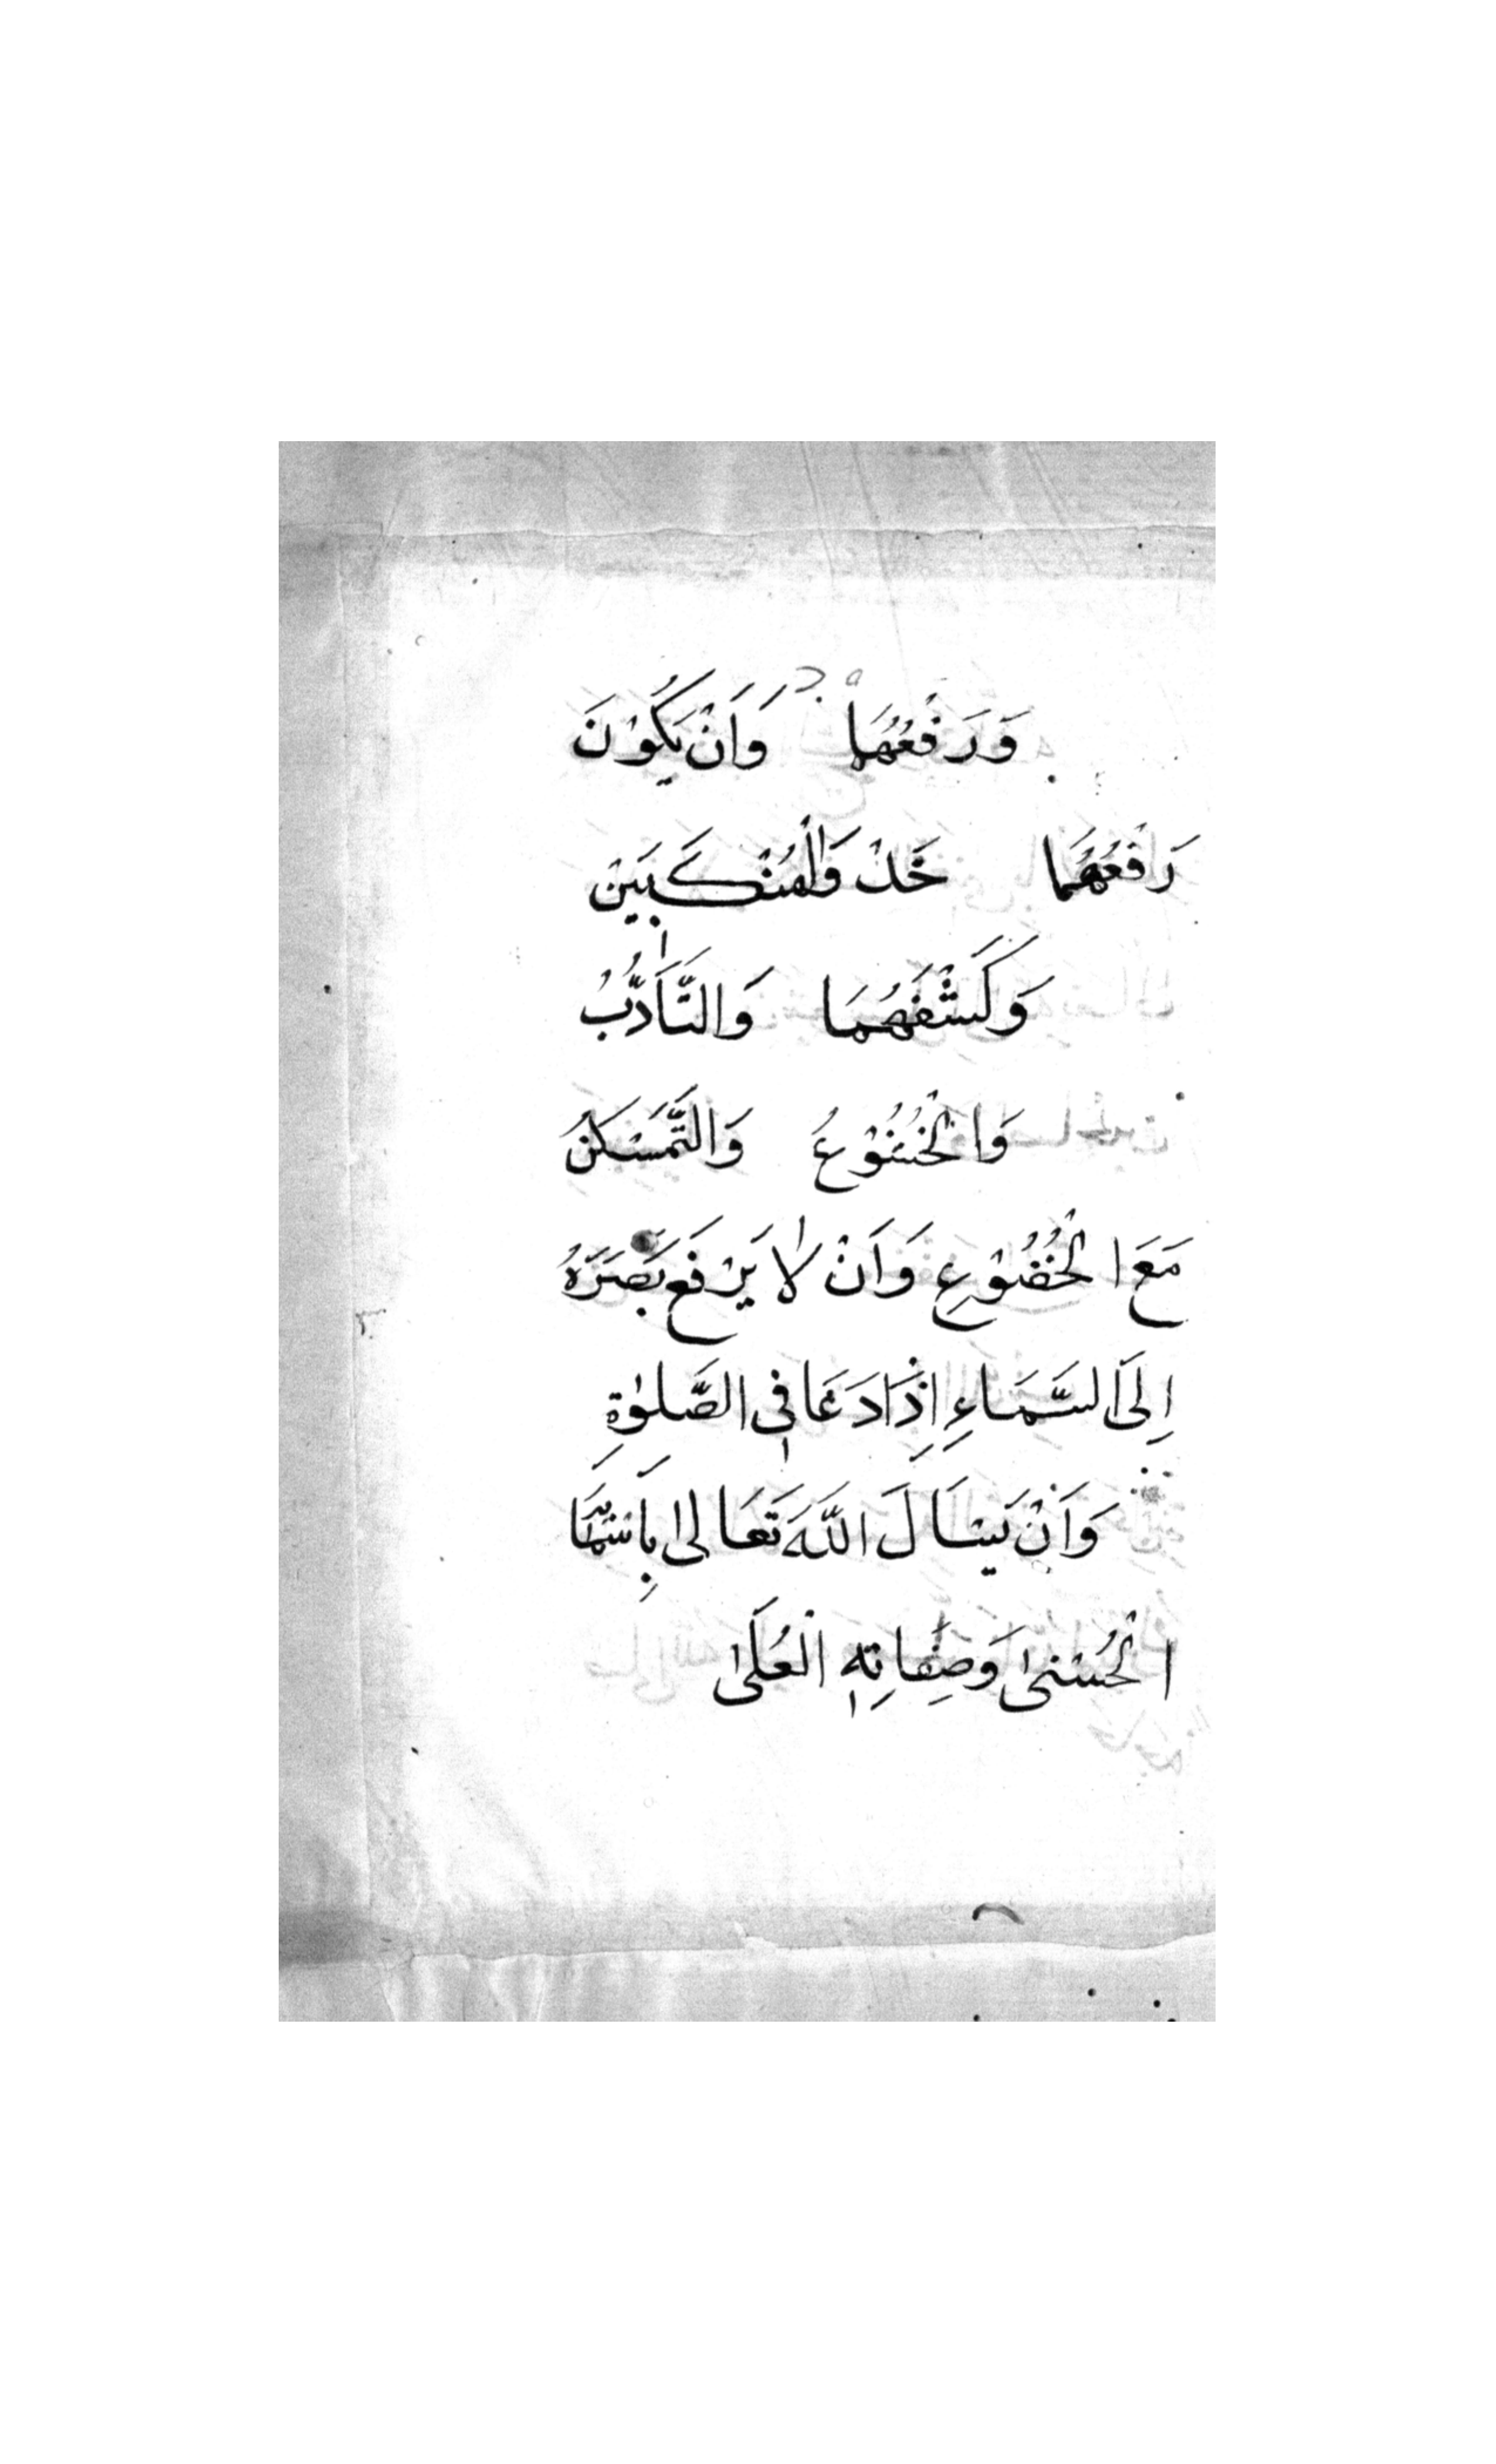 وَرَفْعُهُمَا وَاَنْ يَكُوْنَ
رَفْعُهُمَا حَذْ وَالْمَنْكَبَيْنِ
وَكَشْفُهُمَا وَالتَّاَدُّبُ
وَالْخُشُوْعُ وَالتَّمَسْكُنُ
مَعَ الْخُضُوْعِ وَاَنْ لَا يَرْفَعَ بَصَرَهُ
اِلَى السَّمَاءِ اِذَا دَعَا فِى الصَّلٰوةِ
وَاَنْ يَسْاَلَ اللّٰهَ تَعَالىٰ بِاَسْمَائِهِ
الْحُسْنىٰ وَصِفَاتِهِ الْعُلَىٰ